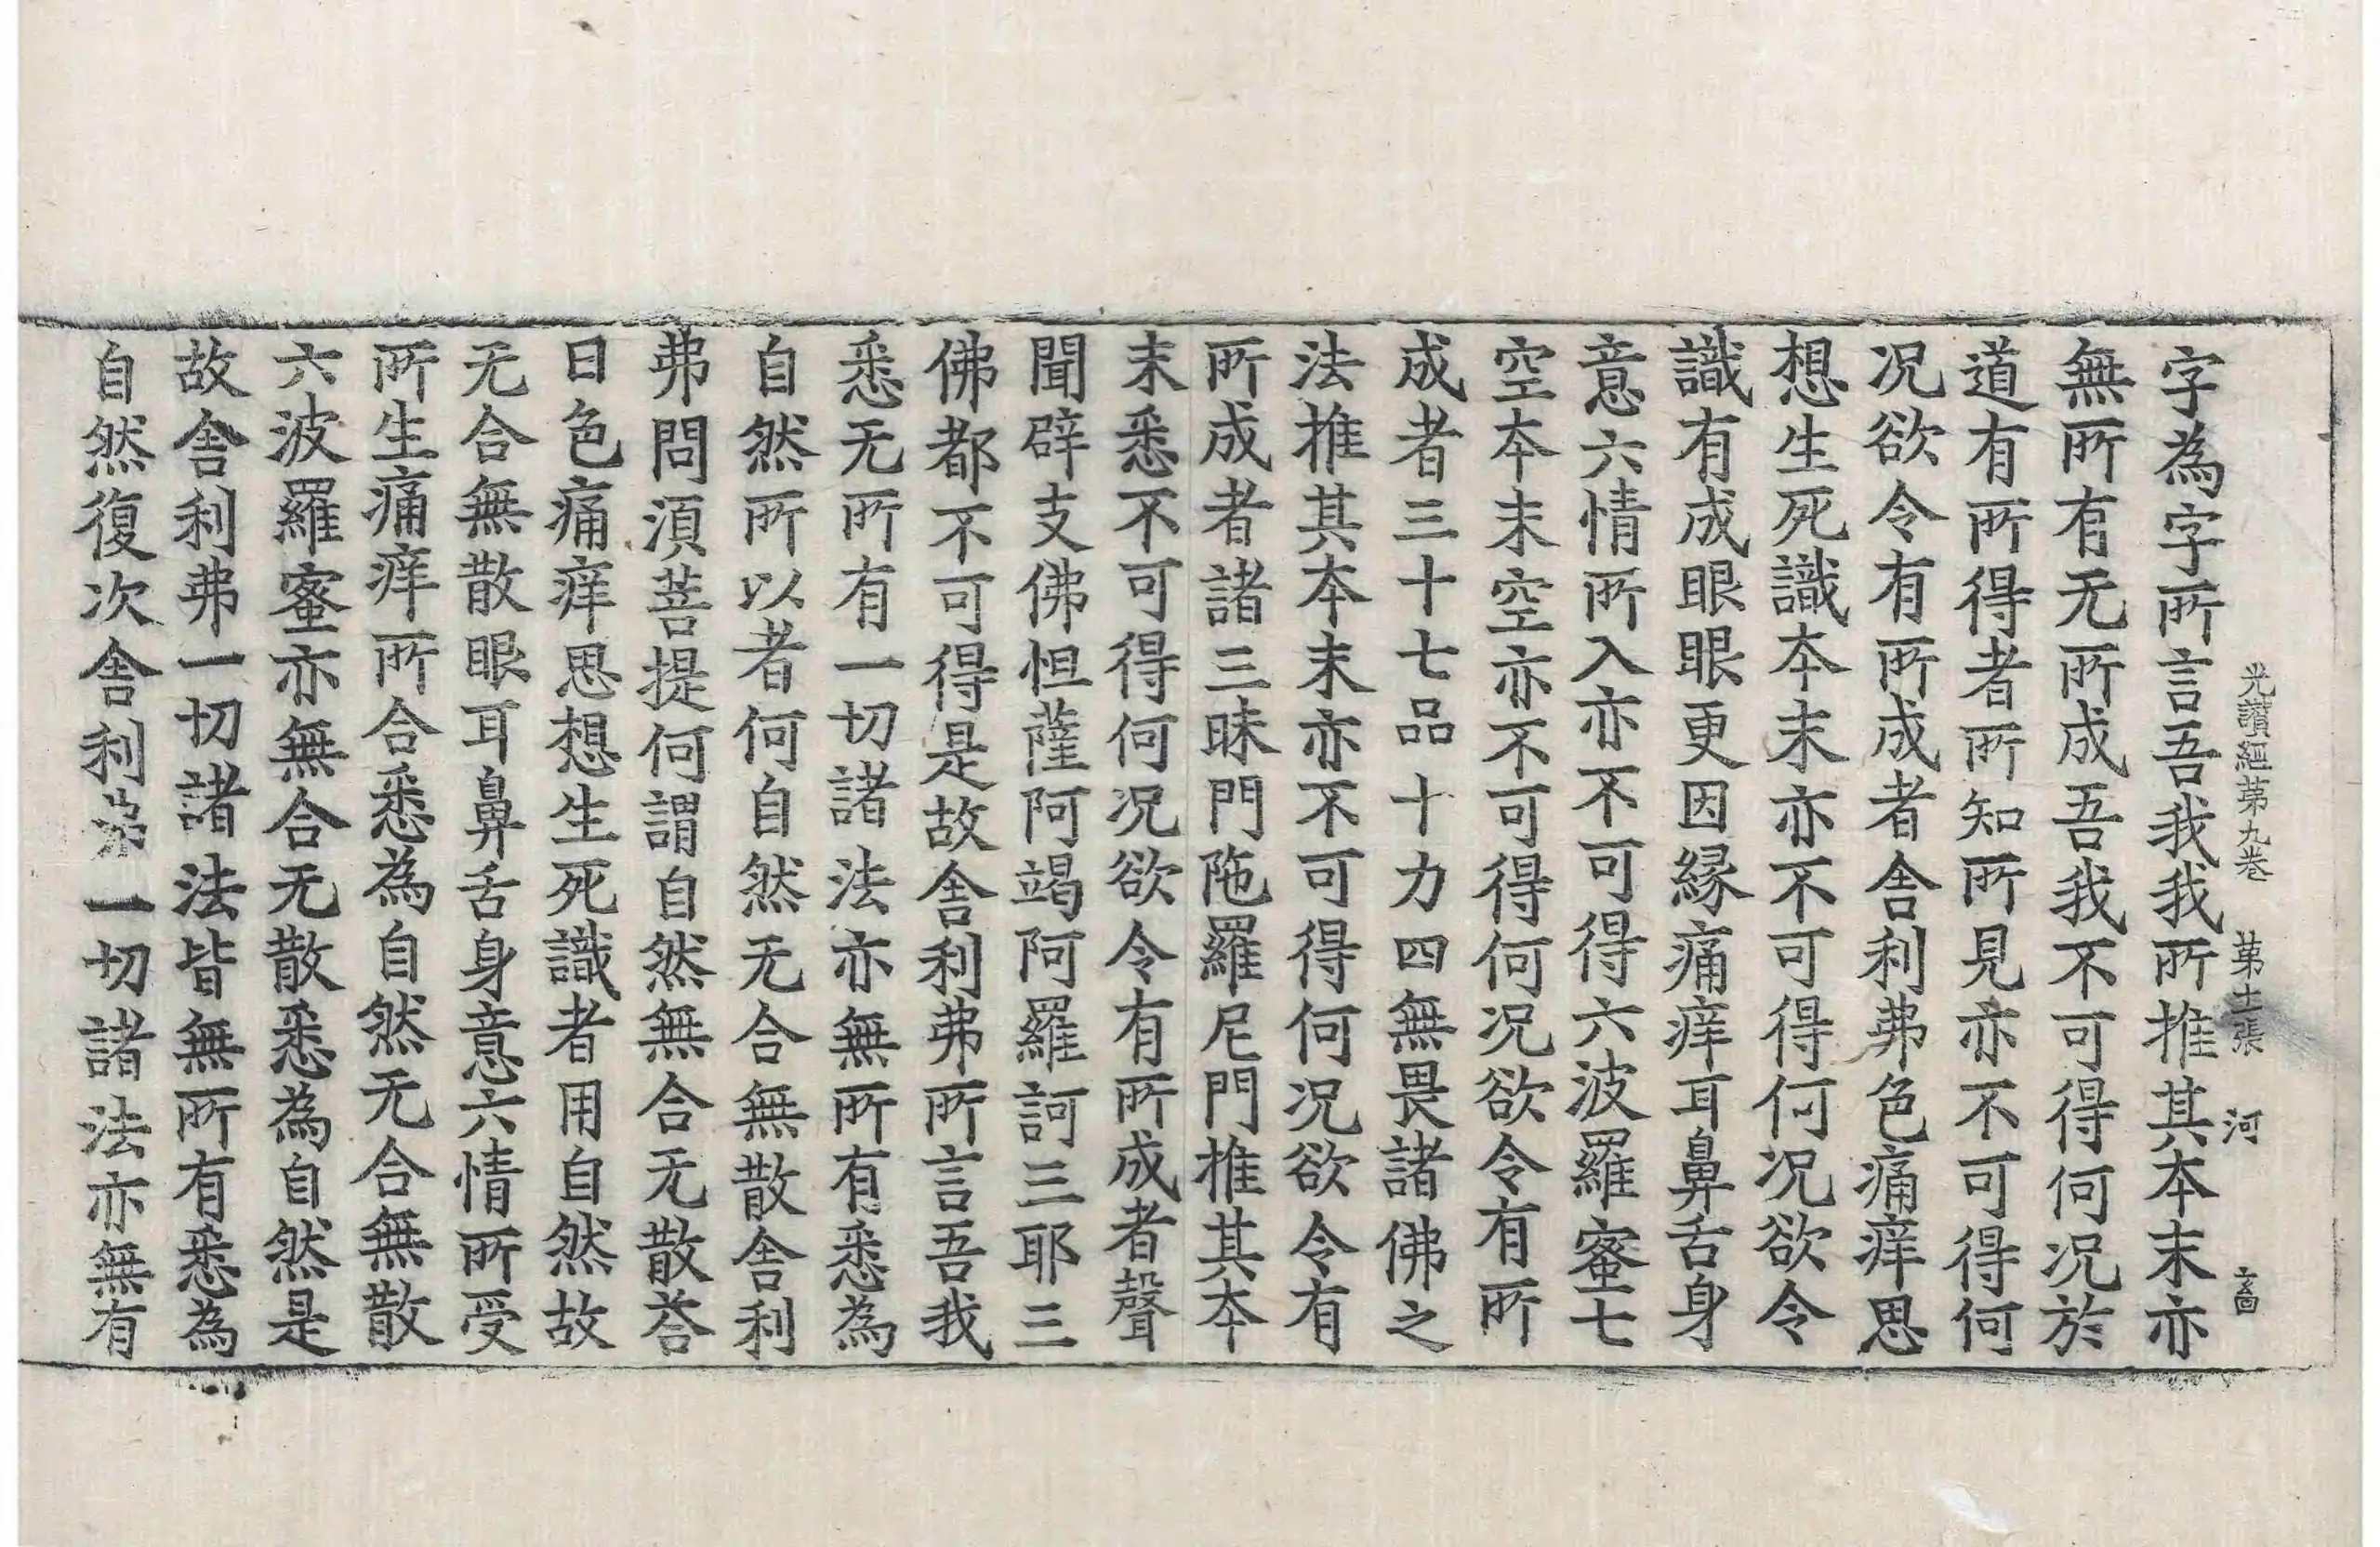 光讃經苐九卷　苐十二張　河
字為字所言吾我我所推其本末亦
無所有无所成吾我不可得何况於
道有所得者所知所見亦不可得何
况欲令有所成者舎利弗色痛痒思
想生死識本末亦不可得何况欲令
識有成眼眼更因縁痛痒耳鼻舌身
意六情所入亦不可得六波羅蜜七
空本末空亦不可得何况欲令有所
成者三十七品十力四無畏諸佛之
法推其本末亦不可得何况欲令有
所成者諸三昧門陁羅尼門推其本
末悉不可得何况欲令有所成者聲
聞辟支佛怛薩阿竭阿羅訶三耶三
佛都不可得是故舎利弗所言吾我
悉无所有一切諸法亦無所有悉為
自然所以者何自然无合無散舎利
弗問湏菩提何謂自然無合无散荅
曰色痛痒思想生死識者用自然故
无合無散眼耳鼻舌身意六情所受
所生痛痒所合悉為自然无合無散
六波羅蜜亦無合无散悉為自然是
故舎利弗一切諸法皆無所有悉為
自然復次舎利弗一切諸法亦無有